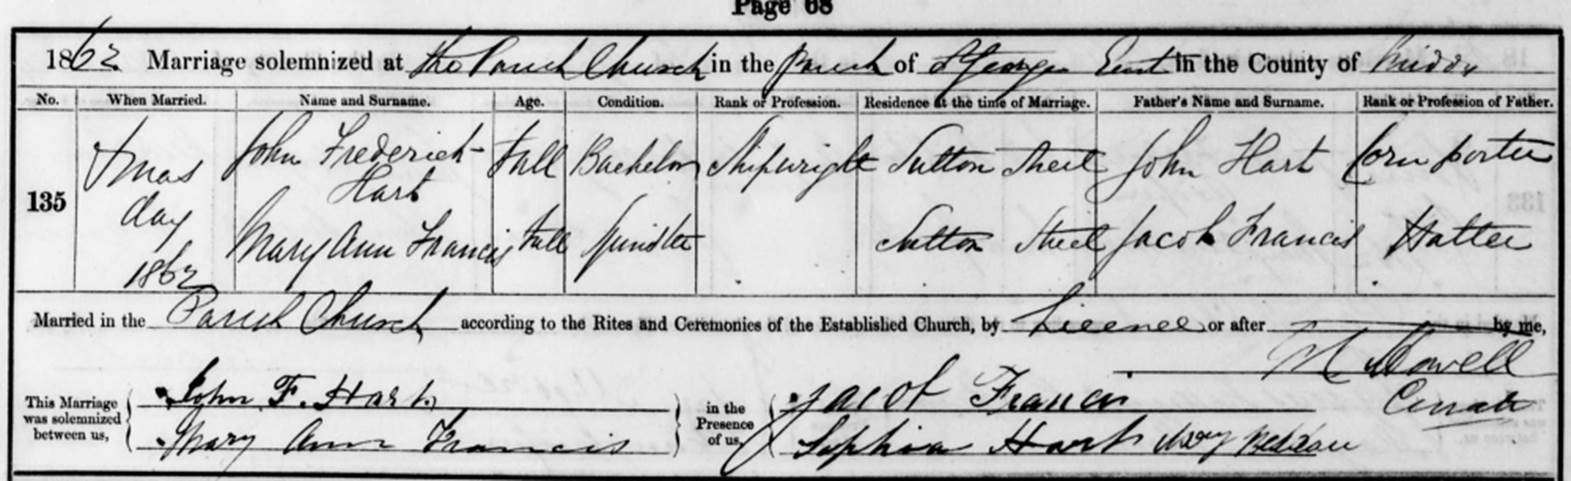 Page 68
1862 Marriage solemnized at the Parish Church in the Parish of St Georges East in the County of Middx
No. When Married. Name and Surname. Age. Condition. Rank or Profession. Residence at the time of Marriage. Father's Name and Surname. Rank or Profession of Father.
135 Xmas day 1862 John Frederick Hart Full Bachelor Shipwright Sutton Street John Hart Corn porter
Mary Ann Francis Full Spinster Sutton Street Jacob Francis Hatter
Married in the Parish Church according to the Rites and Ceremonies of the Established Church, by Licence or after by me,
Curate
This Marriage was solemnized between us, John F. Hart in the Presence of us, Jacob Francis
Mary Ann Francis Sophia Hart Mary